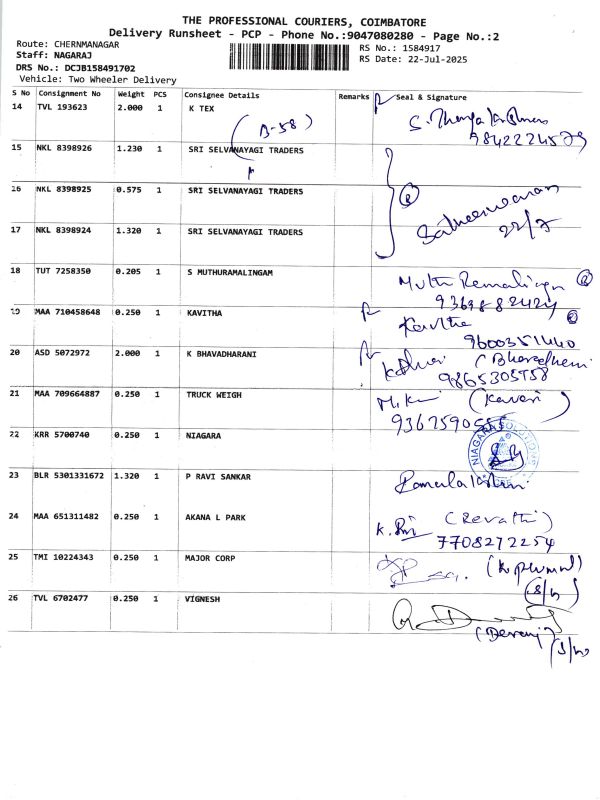 THE PROFESSIONAL COURIERS, COIMBATORE
Delivery Runsheet - PCP - Phone No.:9047080280 - Page No.:2
Route: CHERNMANAGAR
Staff: NAGARAJ
DRS No.: DCJB158491702
Vehicle: Two Wheeler Delivery
RS No.: 1584917
RS Date: 22-Jul-2025
S No Consignment No Weight PCS Consignee Details Remarks Seal & Signature
14 TVL 193623 2.000 1 K TEX
(B-58)
9842224579
15 NKL 8398926 1.230 1 SRI SELVANAYAGI TRADERS
16 NKL 8398925 0.575 1 SRI SELVANAYAGI TRADERS
R
17 NKL 8398924 1.320 1 SRI SELVANAYAGI TRADERS
22/7
18 TUT 7258350 0.205 1 S MUTHURAMALINGAM
Muthu Ramalingam R
9369882424
19 MAA 710458648 0.250 1 KAVITHA
Kavitha R
9600351440
20 ASD 5072972 2.000 1 K BHAVADHARANI
9865305758
21 MAA 709664887 0.250 1 TRUCK WEIGH
(Kaveri)
22 KRR 5700740 0.250 1 NIAGARA
NIAGARA SOLUTIONS
23 BLR 5301331672 1.320 1 P RAVI SANKAR
24 MAA 651311482 0.250 1 AKANA L PARK
(Revathi)
7708272254
25 TMI 10224343 0.250 1 MAJOR CORP
26 TVL 6702477 0.250 1 VIGNESH